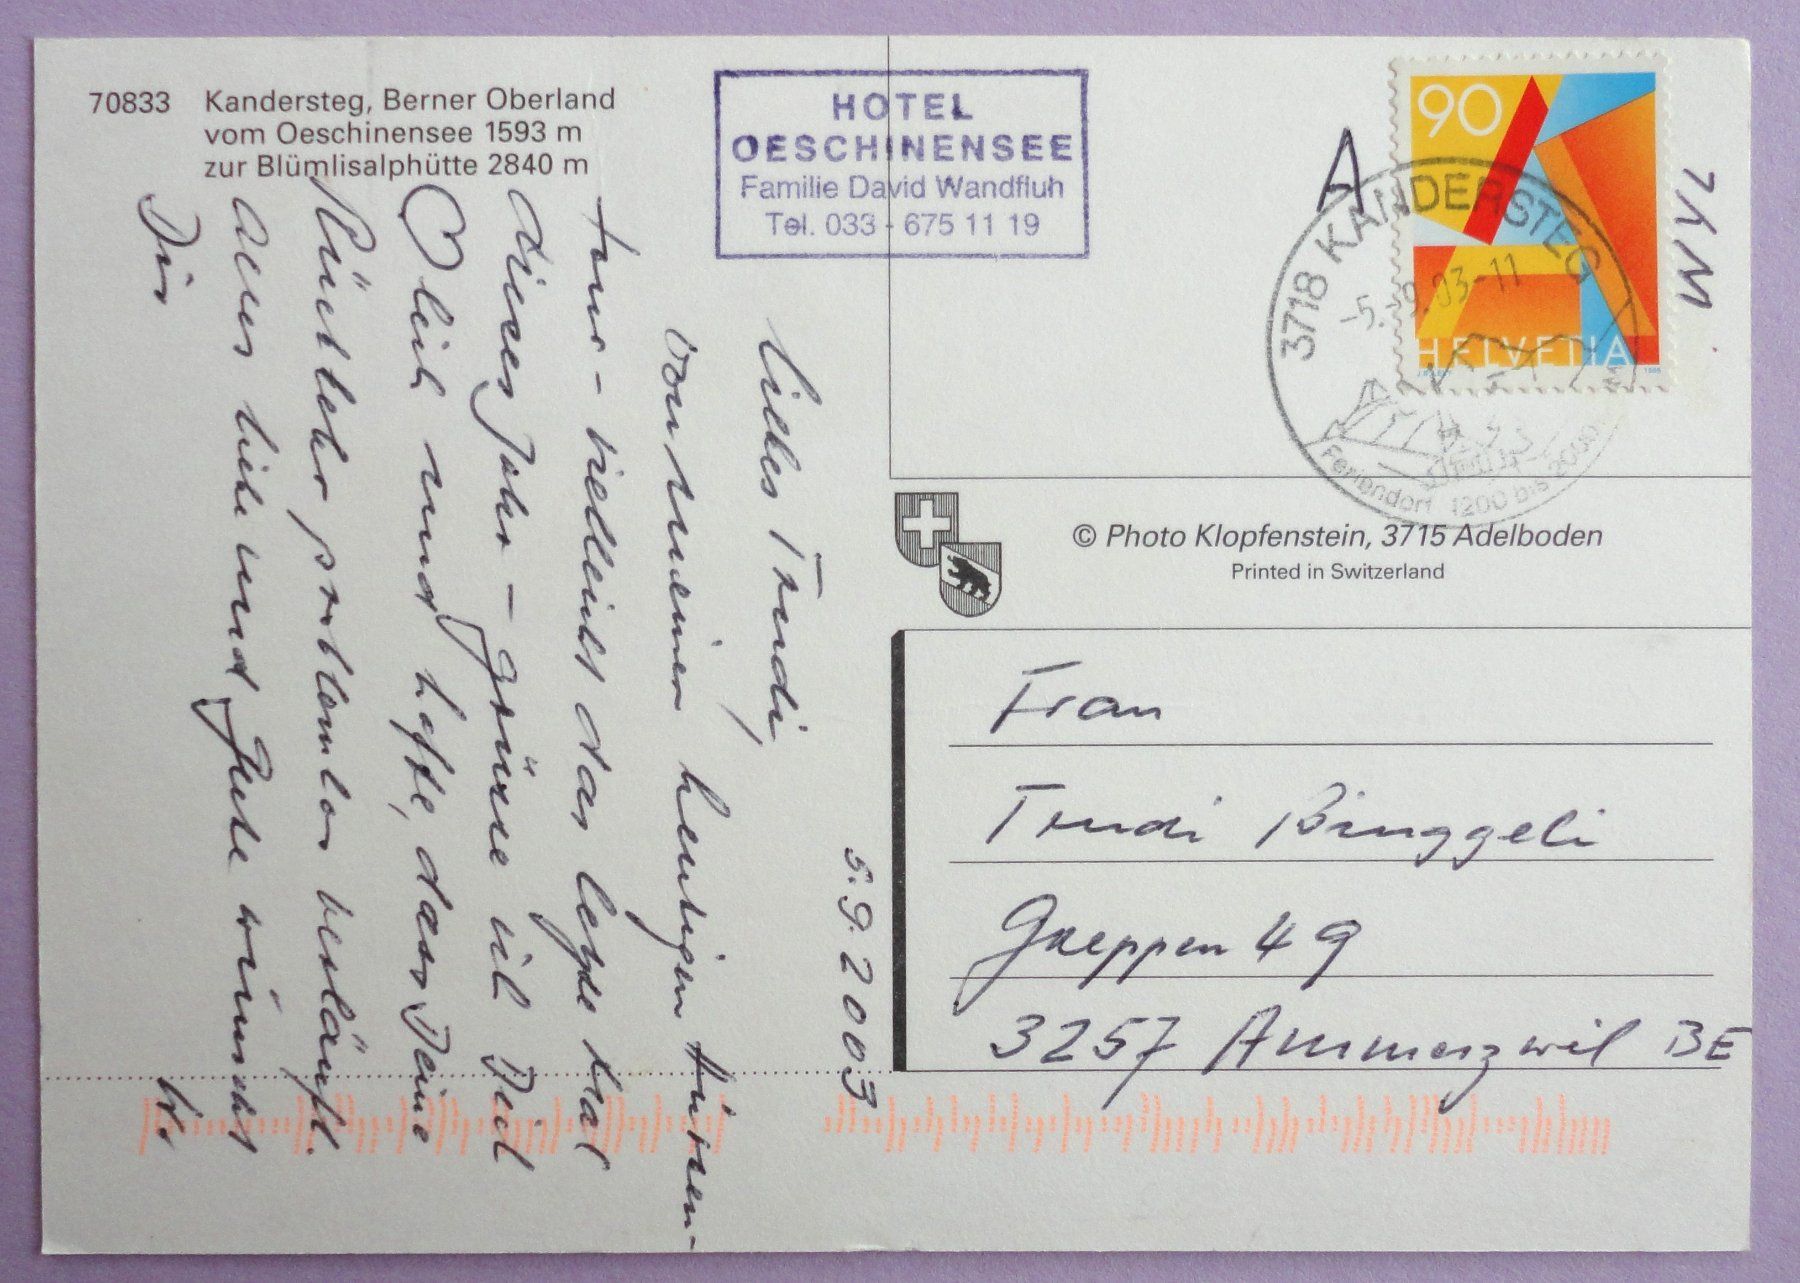 70833 Kandersteg, Berner Oberland
vom Oeschinensee 1593 m
zur Blümlisalphütte 2840 m
HOTEL
OESCHINENSEE
Familie David Wandfluh
Tel. 033 - 675 11 19
A
90
HELVETIA
3718 KANDERSTEG
-5.-9.03-11
Feriendorf 1200 bis
© Photo Klopfenstein, 3715 Adelboden
Printed in Switzerland
5.9.2003
Liebes Trudi,
von meiner heutigen Hütten-
tour - vielleicht das letzte Mal
dieses Jahr - grüsse ich Dich
lich und hoffe, dass Deine
Rückkehr problemlos verläuft.
Alles Liebe und Gute wünscht
Dir
Frau
Trudi Binggeli
Greppen 49
3257 Ammerzwil BE